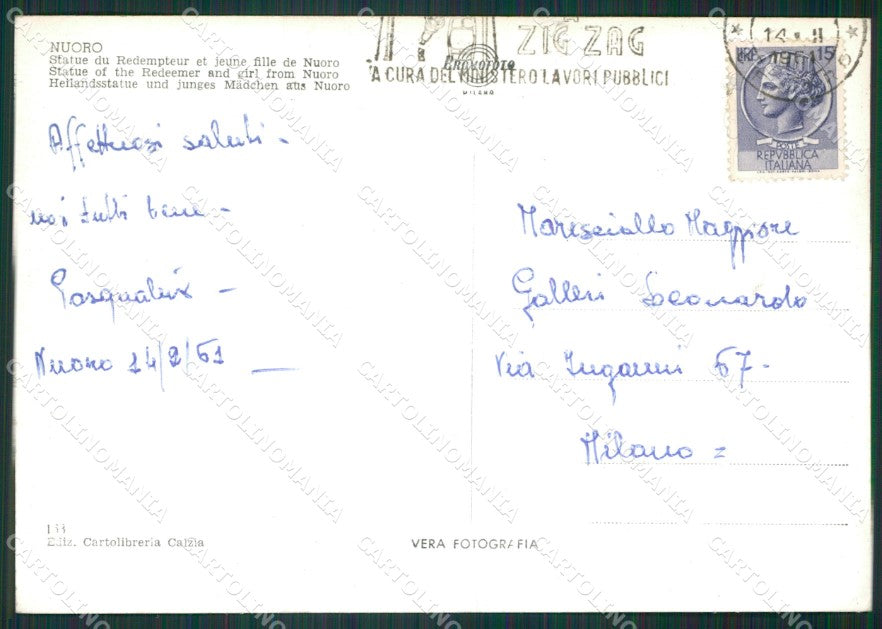 NUORO
Statue du Redempteur et jeune fille de Nuoro
Statue of the Redeemer and girl from Nuoro
Heilandsstatue und junges Mädchen aus Nuoro
ZIG ZAG
A CURA DEL MINISTERO LAVORI PUBBLICI
MILANO
14. II
15
POSTE
REPVBBLICA
ITALIANA
Affettuosi saluti -
noi tutti bene -
Nuoro 14/2/61
Maresciallo Maggiore
Galleri Leonardo
Via Inganni 67 -
Milano =
Ediz. Cartolibreria Calzia
VERA FOTOGRAFIA
CARTOLINOMANIA